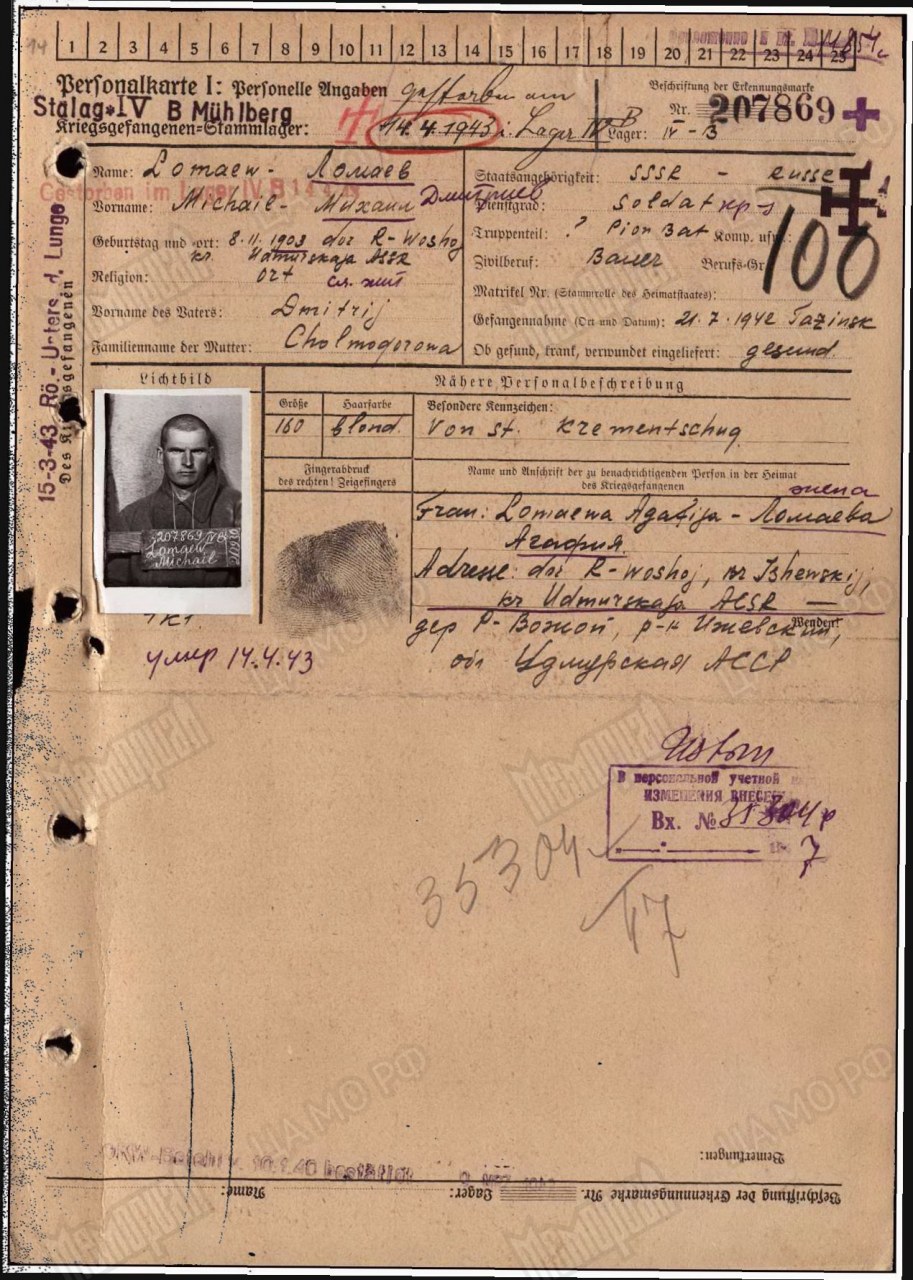 1 2 3 4 5 6 7 8 9 10 11 12 13 14 15 16 17 18 19 20 21 22 23 24 25
Personalkarte I: Personelle Angaben
gestorben am
Beschriftung der Erkennungsmarke
Stalag IV B Mühlberg
Nr. 207869
Kriegsgefangenen-Stammlager:
14.4.1943 i. Lager IV B
Lager: IV-B
Name: Lomaew - Ломаев
Staatsangehörigkeit: SSSR - Russe
Gestorben im Lager IV B 14.4.43
Vorname: Michail - Михаил Дмитриев
Dienstgrad: Soldat кр-ц
Geburtstag und -ort: 8.11.1903 dor R-Woshoj
Truppenteil: ? Pion Bat Komp. usw.:
kr. Udmurskaja ASSR
Zivilberuf: Bauer Berufs-Gr.
100
Religion: ort
Matrikel Nr. (Stammrolle des Heimatstaates):
Vorname des Vaters: Dmitrij
Gefangennahme (Ort und Datum): 21.7.1942 Tazinsk
Familienname der Mutter: Cholmogorowa
Ob gesund, krank, verwundet eingeliefert: gesund.
15-3-43 Rö.-Unters. d. Lunge
Des Kriegsgefangenen
Lichtbild
Nähere Personalbeschreibung
Größe
Haarfarbe
Besondere Kennzeichen:
160
blond.
Von st. Krementschug
Fingerabdruck
des rechten! Zeigefingers
Name und Anschrift der zu benachrichtigenden Person in der Heimat
des Kriegsgefangenen
жена
Frau: Lomaewa Agafija - Ломаева
Агафия
207869 IVB
Lomaew
Michail
Adresse: dor R-Woshoj, kr Ishewskij,
kr Udmurskaja ASSR —
Wenden!
дер Р-Вожой, р-н Ижевский,
умер 14.4.43
обл Удмурская АССР
В персональной учетной
ИЗМЕНЕНИЯ ВНЕСЕНЫ
Вх. №
35304
47
Bemerkungen:
Name:
Lager:
Beschriftung der Erkennungsmarke Nr.
Мемориал
ЦАМО РФ